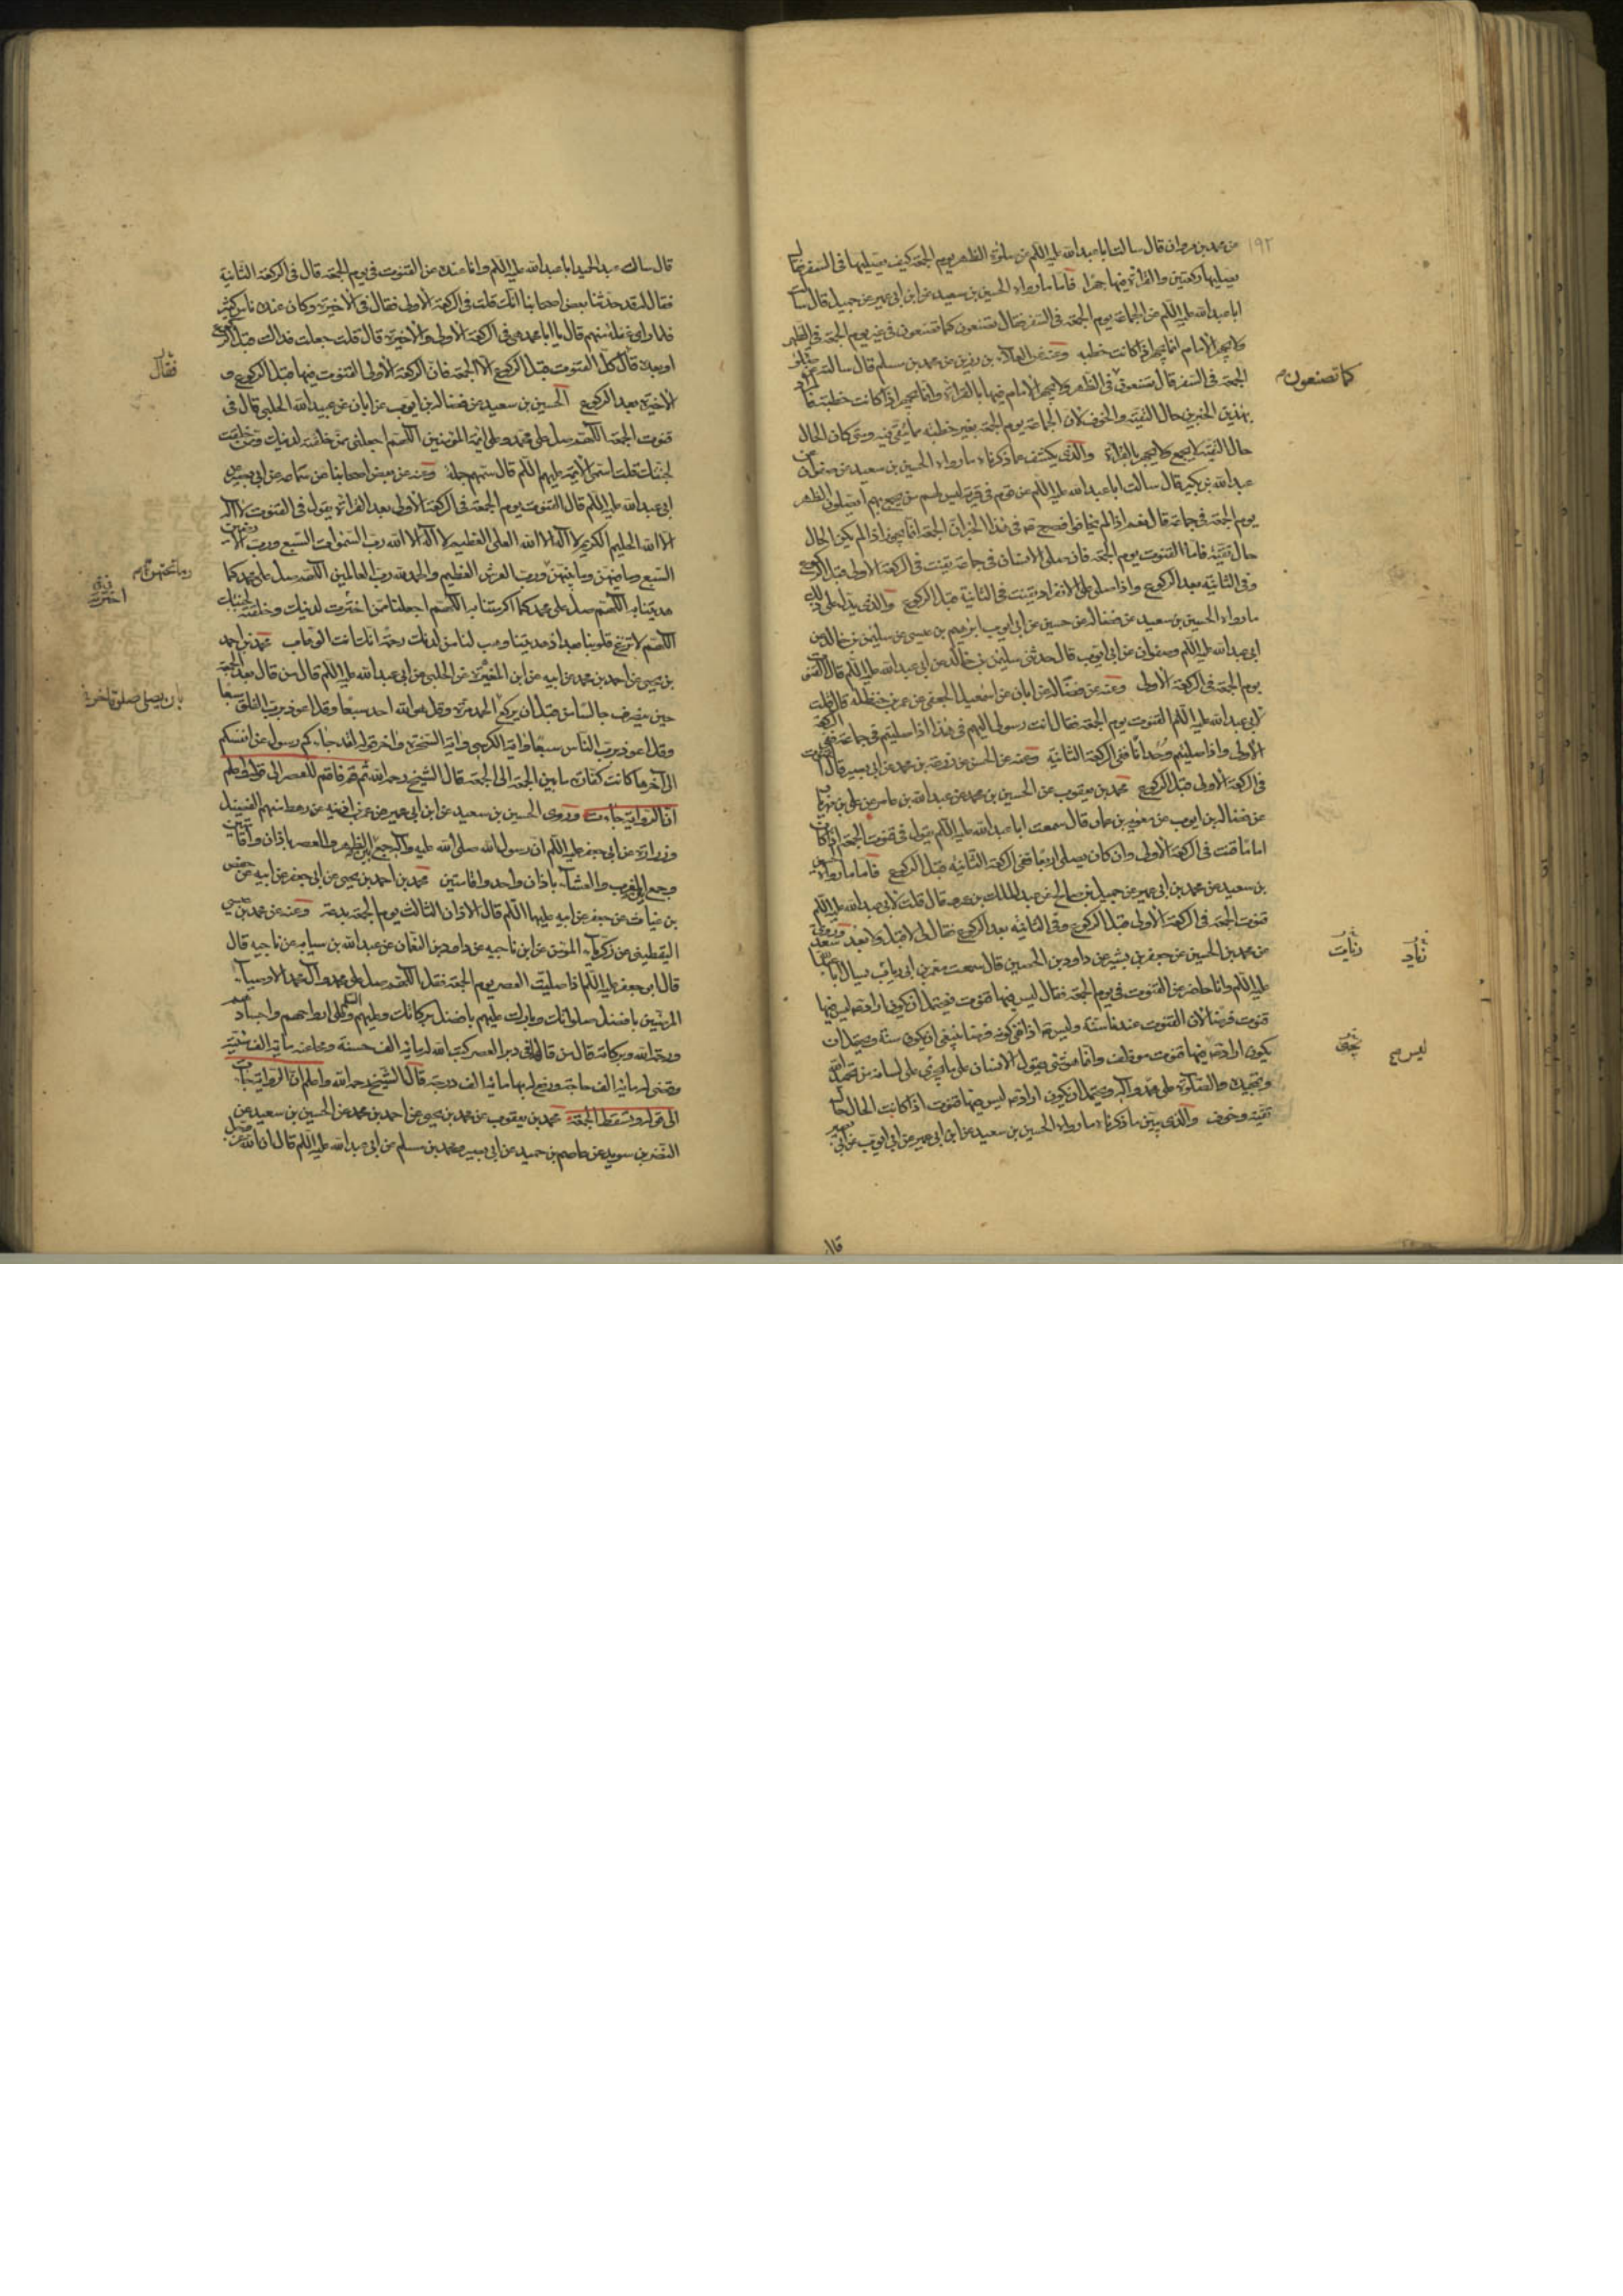 ١٩٢
عن محمد بن مروان قال سالت ابا عبد الله عليه السلم عن صلوة الظهر يوم الجمعة كيف نصليها فى السفر فقال
يصليها ركعتين والقراءة فيها جهرا فاما ما رواه الحسين بن سعيد عن ابن ابى عمير عن جميل قال سالت
ابا عبد الله عليه السلم عن الجماعة يوم الجمعة فى السفر فقال تصنعون كما تصنعون فى غير يوم الجمعة فى الظهر
ولا يجهر الامام انما يجهر اذا كانت خطبه وعنه عن العلاء بن رزين عن محمد بن مسلم قال سالته عن صلوة
الجمعة فى السفر قال تصنعون فى الظهر ولا يجهر الامام فيها بالقراءة وانما يجهر اذا كانت خطبة فالمراد
كما تصنعون
بهذين الخبرين حال التقيه والخوف لان الجماعة يوم الجمعة بغير خطبة مما يتقى فيه ومتى كان الحال
حال التقية لا يجمع ولا يجهر بالقراءة والذى يكشف عما ذكرناه ما رواه الحسين بن سعيد عن صفوان عن
عبد الله بن بكير قال سالت ابا عبد الله عليه السلم عن قوم فى قرية ليس لهم من يجمع بهم ايصلون الظهر
يوم الجمعة فى جماعة قال نعم اذا لم يخافوا فصرح فى هذا الخبر ان الجمعة انما يجوز اذا لم يكن الحال
حال تقيّة فاما القنوت يوم الجمعة فان صلى الانسان فى جماعة يقنت فى الركعة الاولى قبل الركوع
وفى الثانيه بعد الركوع واذا صلى على الانفراد يقنت فى الثانية قبل الركوع والذى يدل على ذلك
ما رواه الحسين بن سعيد عن فضاله عن حسين عن ابى ايوب ابرهيم بن عيسى عن سليمن بن خالد عن
ابى عبد الله عليه السلم وصفوان عن ابى ايوب قال حدثنى سليمن بن خالد عن ابى عبد الله عليه السلم قال القنوت
يوم الجمعة فى الركعة الاولى وعنه عن فضاله عن ابان عن اسمعيل الجعفى عن عمر بن حنظله قال قلت
لابى عبد الله عليه السلم القنوت يوم الجمعة فقال انت رسولى اليهم فى هذا اذا صليتم فى جماعة ففى الركعة
الاولى واذا صليتم وحدانا ففى الركعة الثانية وعنه عن الحسن عن زرعه بن محمد عن ابى بصير قال القنوت
فى الركعة الاولى قبل الركوع محمد بن يعقوب عن الحسين بن محمد عن عبد الله بن عامر عن على بن مهزيار
عن فضاله بن ايوب عن معويه بن عمار قال سمعت ابا عبد الله عليه السلم يقول فى قنوت الجمعة اذا كان
اماما قنت فى الركعة الاولى وان كان يصلى اربعا ففى الركعة الثانيه قبل الركوع فاما ما رواه الحسين
بن سعيد عن محمد بن ابى عمير عن جميل بن صالح عن عبد الملك بن عمرو قال قلت لابى عبد الله عليه السلم
قنوت الجمعة فى الركعة الاولى قبل الركوع وفى الثانيه بعد الركوع فقال لى لا قبل ولا بعد وروى سعد
عن محمد بن الحسين عن جعفر بن بشير عن داود بن الحصين قال سمعت معمر بن ابى رياب يسال ابا عبد الله
رئاب
عليه السلم وانا حاضر عن القنوت فى يوم الجمعة فقال ليس فيها قنوت فيحتمل ان يكون اراد ليس فيها
قنوت فرضا لان القنوت عندنا سنة وليس اذا نفى كونه فرضا ينبغى ان يكون سنة ويحتمل ان
يكون اراد ليس فيها قنوت موظف وانما هو شى يقول الانسان على ما يجرى على لسانه من تحميد الله
ليس
وتمجيده والصلوة على محمد وآله ويحتمل ان يكون اراد ليس فيها قنوت اذا كانت الحال حال
تقيّة وخوف والذى يبين ما ذكرناه ما رواه الحسين بن سعيد عن ابن ابى عمير عن ابى ايوب عن ابى بصير
قال
قال سال عبد الحميد ابا عبد الله عليه السلم وانا عنده عن القنوت فى يوم الجمعة قال فى الركعة الثانية
فقال له قد حدثنا بعض اصحابنا انك قلت فى الركعة الاولى فقال فى الاخيرة وكان عنده ناس كثير
فلما راى غفلة منهم قال يا ابا محمد هى فى الركعة الاولى والاخيرة قال قلت جعلت فداك قبل الركوع
او بعده قال كل القنوت قبل الركوع الا الجمعة فان الركعة الاولى القنوت فيها قبل الركوع و
فقال
الاخيره بعد الركوع الحسين بن سعيد عن فضاله بن ايوب عن ابان عن عبيد الله الحلبى قال فى
قنوت الجمعة اللهم صل على محمد وعلى ائمة المؤمنين اللهم اجعلنى ممن خلقته لدينك وممن خلقت
لجنتك قلت اسمى الائمة عليهم السلم قال سمهم جملة وعنه عن بعض اصحابنا عن سماعه عن ابى بصير عن
ابى عبد الله عليه السلم قال القنوت يوم الجمعة فى الركعة الاولى بعد القراءة يقول فى القنوت لا اله
الا الله الحليم الكريم لا اله الا الله العلى العظيم لا اله الا الله رب السموات السبع ورب الارضين
السبع وما فيهن وما بينهن ورب العرش العظيم والحمد لله رب العالمين اللهم صل على محمد كما
وما تحتهن
هديتنا به اللهم صل على محمد كما اكرمتنا به اللهم اجعلنا ممن اخترت لدينك وخلقته لجنتك
اخترته
اللهم لا تزغ قلوبنا بعد اذ هديتنا وهب لنا من لدنك رحمة انك انت الوهاب محمد بن احمد
بن يحيى عن احمد بن محمد عن ابيه عن ابن المغيرة عن الحلبى عن ابى عبد الله عليه السلم قال من قال بعد الجمعة
حين ينصرف جالسا من قبل ان يركع الحمد مرة وقل هو الله احد سبعا وقل اعوذ برب الفلق سبعا
وقل اعوذ برب الناس سبعا واية الكرسى واية السخرة واخر قوله لقد جاءكم رسول من انفسكم
الى آخرها كانت كفارة ما بين الجمعة الى الجمعة قال الشيخ رحمه الله ثم قم فاقم للعصر الى قوله واعلم
ان الرواية جاءت وروى الحسين بن سعيد عن ابن ابى عمير عن عمر بن اذينه عن رهط منهم الفضيل
وزراره عن ابى جعفر عليه السلم ان رسول الله صلى الله عليه وآله جمع بين الظهر والعصر باذان واقامتين
وجمع بين المغرب والعشاء باذان واحد واقامتين محمد بن احمد بن يحيى عن ابى جعفر عن ابيه عن حفص
بن غياث عن جعفر عن ابيه عليهما السلم قال الاذان الثالث يوم الجمعة بدعة وعنه عن محمد بن عيسى
اليقطينى عن زكريا المؤمن عن ابن ناجيه عن داود بن النعمان عن عبد الله بن سيابه عن ناجيه قال
قال ابو جعفر عليه السلم اذا صليت العصر يوم الجمعة فقل اللهم صل على محمد وآل محمد الاوصياء
المرضيين بافضل صلواتك وبارك عليهم بافضل بركاتك وعليهم السلم وعلى ارواحهم واجسادهم
ورحمة الله وبركاته قال من قالها فى دبر العصر كتب الله له مائة الف حسنة ومحا عنه مائة الف سيئة
وقضى له مائة الف حاجة ورفع له بها مائة الف درجة قال الشيخ رحمه الله واعلم ان الرواية جاءت
الى قوله وتسقط الجمعة محمد بن يعقوب عن محمد بن يحيى عن احمد بن محمد عن الحسين بن سعيد عن
النضر بن سويد عن عاصم بن حميد عن ابى بصير ومحمد بن مسلم عن ابى عبد الله عليه السلم قال ان الله عز وجل